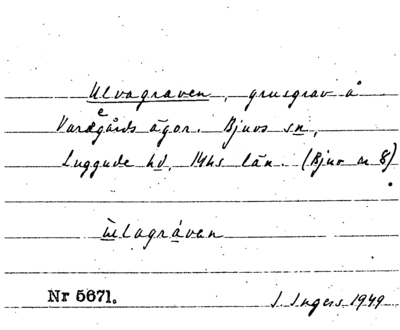 Ulvagraven, grusgrav å
Varagårds ägor. Bjuvs sn,
Luggude hd, Mhs län. (Bjuv nr 8)
ùlagráven
Nr 5671. I. Ingers 1949